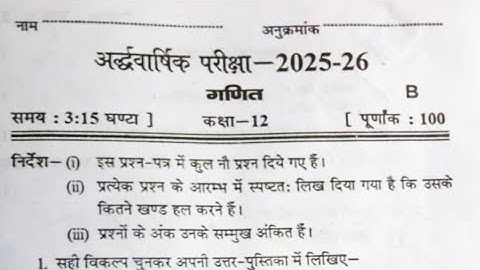 नाम अनुक्रमांक
अर्द्धवार्षिक परीक्षा—2025-26
गणित B
समय : 3:15 घण्टा ] कक्षा—12 [ पूर्णांक : 100
निर्देश— (i) इस प्रश्न-पत्र में कुल नौ प्रश्न दिये गए हैं।
(ii) प्रत्येक प्रश्न के आरम्भ में स्पष्टत: लिख दिया गया है कि उसके
कितने खण्ड हल करने हैं।
(iii) प्रश्नों के अंक उनके सम्मुख अंकित हैं।
1. सही विकल्प चुनकर अपनी उत्तर-पुस्तिका में लिखिए—